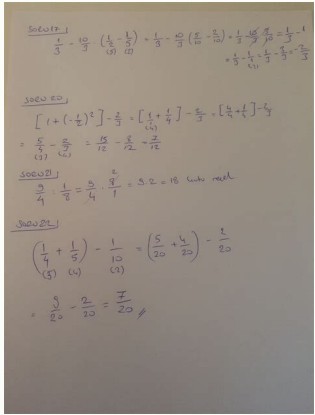 SORU 17
1/3 - 10/3 · (1/2 - 1/5) = 1/3 - 10/3 (5/10 - 2/10) = 1/3 - 10/3 · 3/10 = 1/3 - 1
(5) (2)
SORU 20
[1 + (-1/2)²] - 2/3 = [1/1 + 1/4] - 2/3 = [4/4 + 1/4] - 2/3
(4)
= 5/4 - 2/3 = 15/12 - 8/12 = 7/12
(3) (4)
SORU 21
9/4 : 1/8 = 9/4 · 8/1 = 9.2 = 18
2
SORU 22
(1/4 + 1/5) - 1/10 = (5/20 + 4/20) - 2/20
(5) (4) (2)
= 9/20 - 2/20 = 7/20